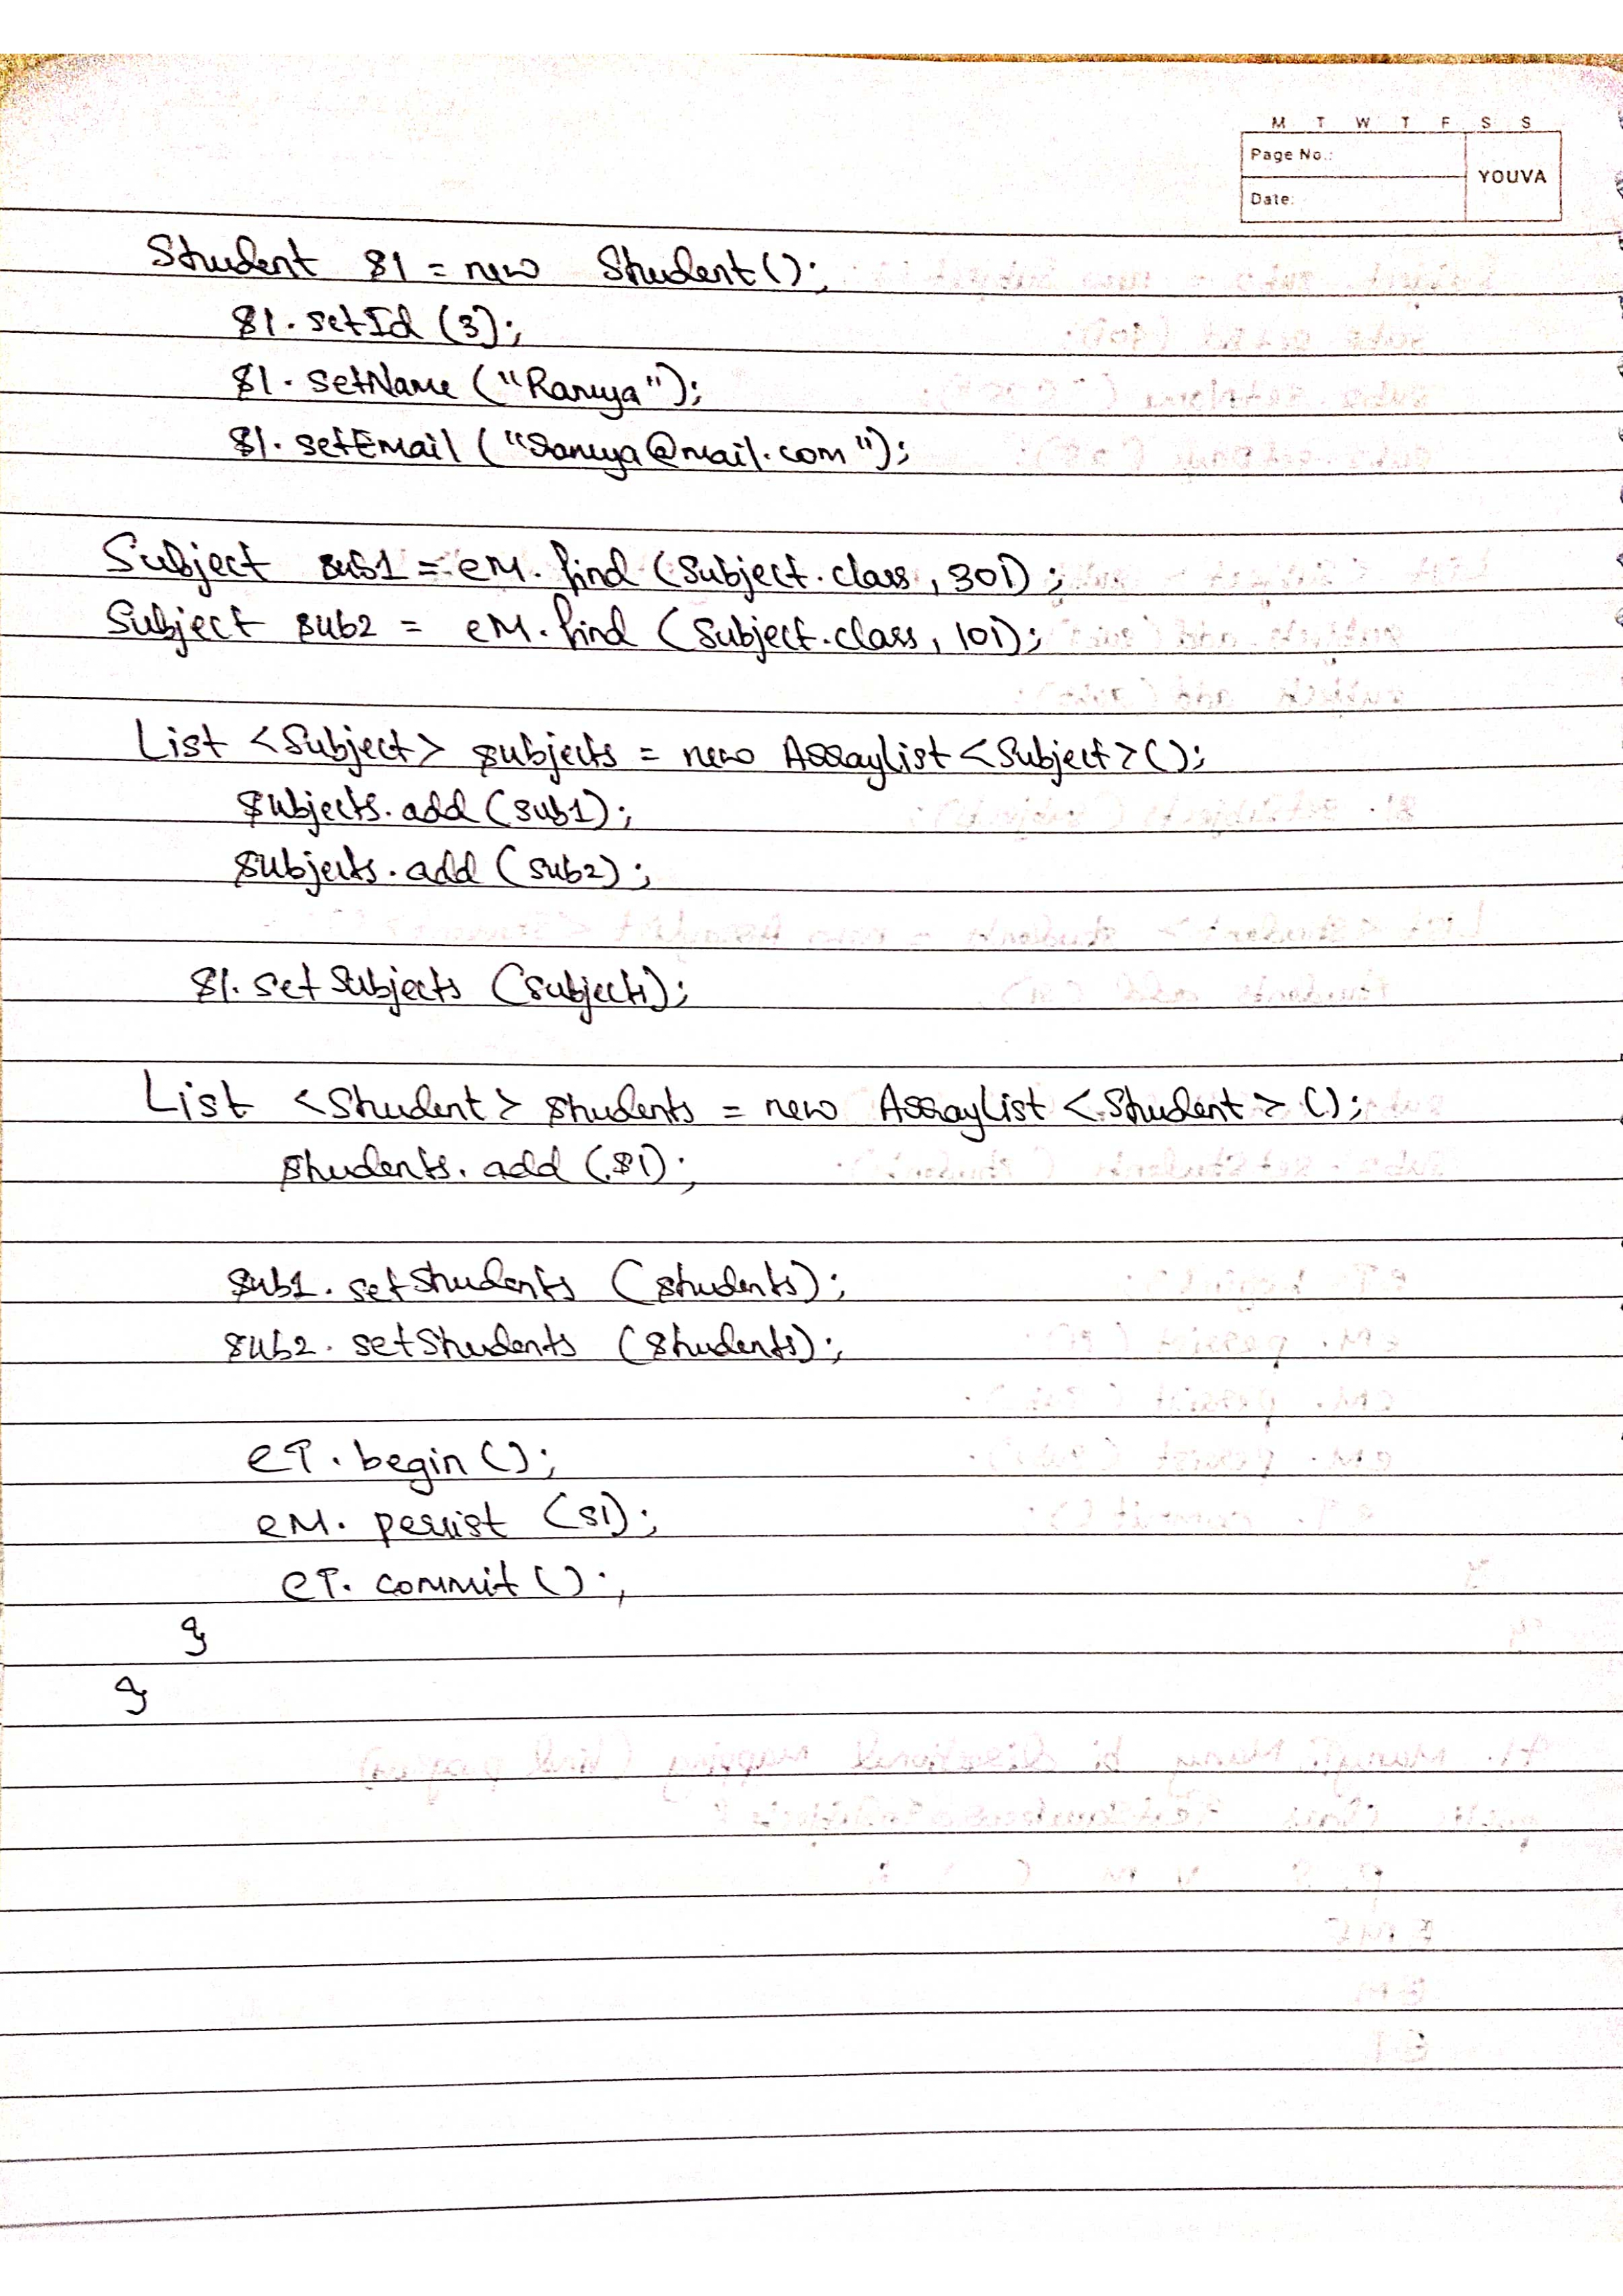 M T W T F S S
Page No.:
YOUVA
Date:
Student s1 = new Student();
s1.setId (3);
s1.setName ("Ramya");
s1.setEmail ("ramya@mail.com");
Subject sub1 = eM.find (Subject.class, 301);
Subject sub2 = eM.find (Subject.class, 101);
List <Subject> subjects = new ArrayList <Subject>();
subjects.add (sub1);
subjects.add (sub2);
s1.setSubjects (subjects);
List <Student> students = new ArrayList <Student> ();
students.add (s1);
sub1.setStudents (students);
sub2.setStudents (students);
eT.begin();
eM.persist (s1);
eT.commit();
}
}